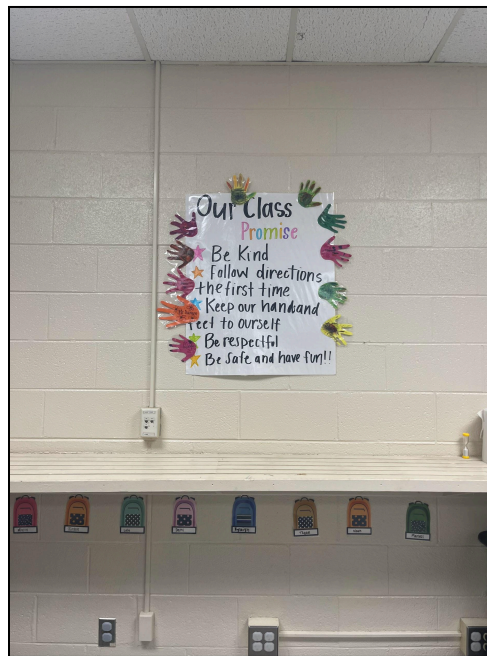 Our Class
Promise
Be Kind
Follow directions
the first time
Keep our hand and
feet to ourself
Be respectful
Be safe and have fun!!